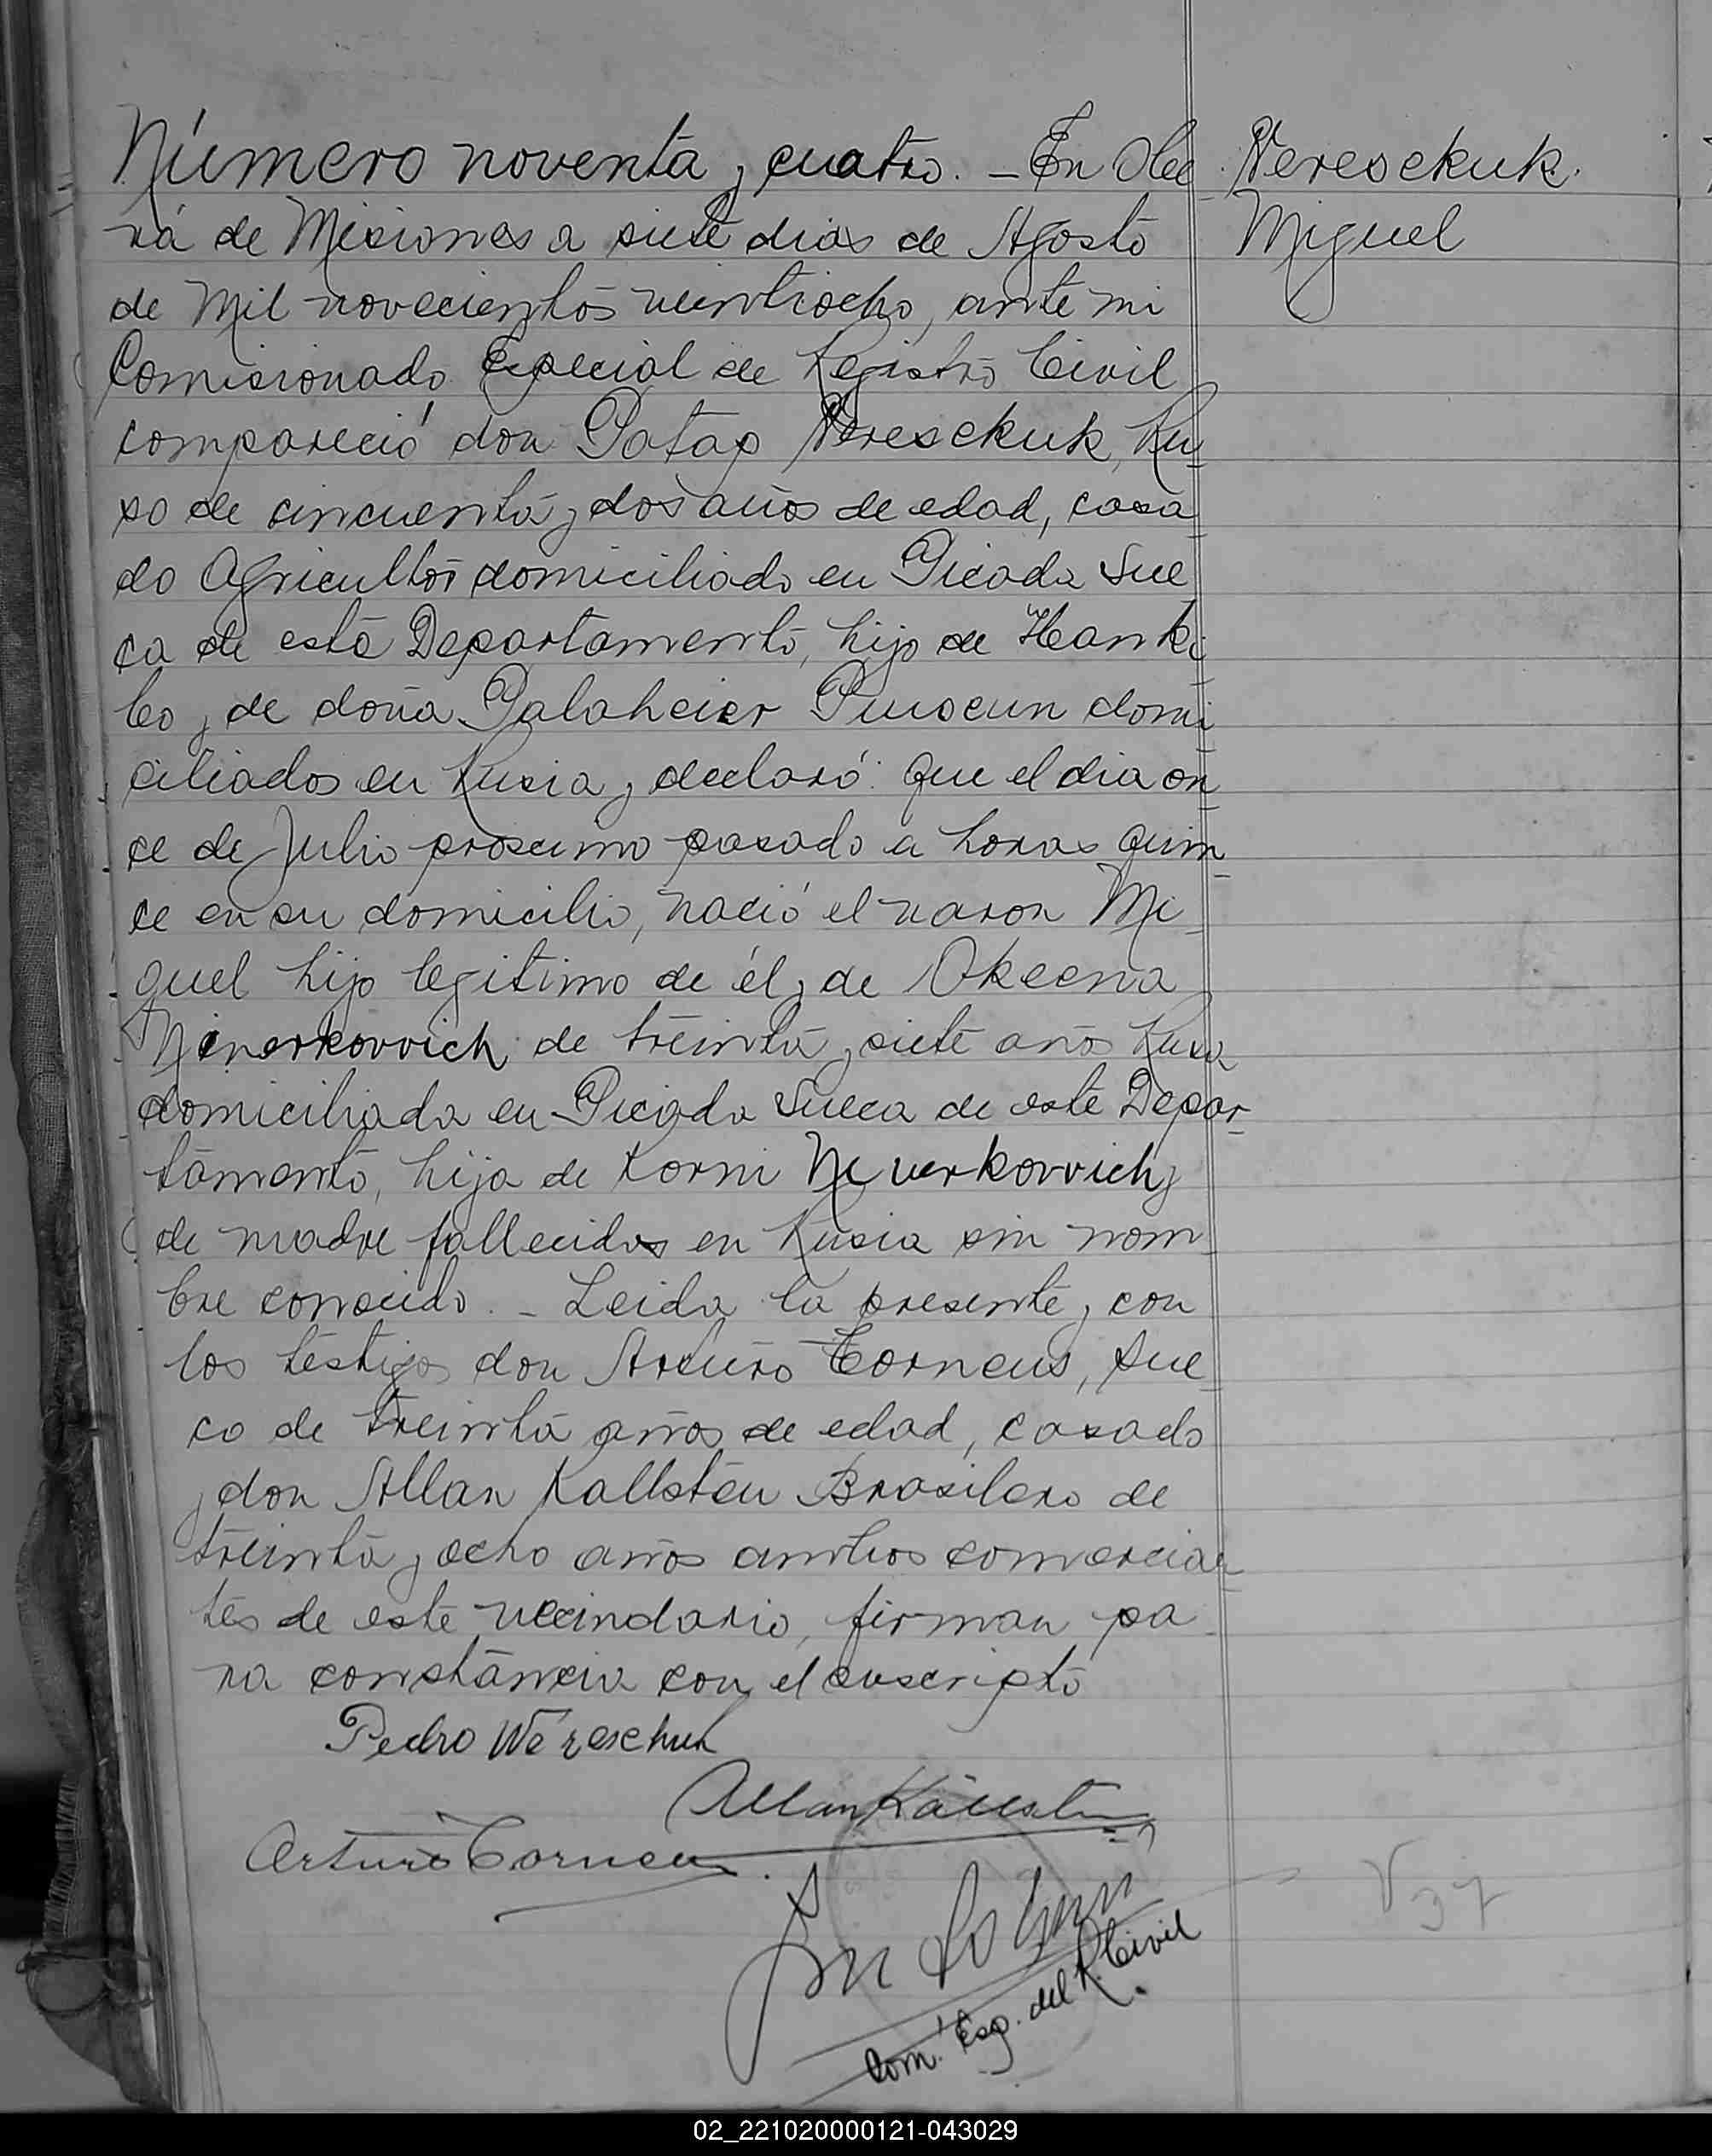 Número noventa y cuatro. – En Obe
Vereschuk.
rá de Misiones a siete dias de Agosto
Miguel
de Mil novecientos veintiocho, ante mi
Comisionado Especial de Registro Civil
compareció don Patap Vereschuk, Ru
so de cincuenta y dos años de edad, casa
do Agricultor domiciliado en Picada Sue
ca de este Departamento, hijo de Hanki
bo y de doña Palaheier domi
ciliados en Rusia y declaró: que el dia on
ce de Julio proximo pasado a horas quin
ce en su domicilio, nació el varon Mi
guel hijo legitimo de él y de Okeena
Neverkovvich de treinta y siete anos Rusa
domiciliada en Picada Sueca de este Depar
tamento, hija de Korni Neverkovvich y
de madre fallecidos en Rusia sin nom
bre conocido. – Leida la presente y con
los testigos don Arturo Corneus, Sue
co de treinta años de edad, casado
y don Allan Kallsten Brasilero de
treinta y ocho años ambos comercian
tes de este vecindario, firman pa
ra constancia con el suscripto
Pedro Wereschuk
Allan Källsten
Arturo Corneus.
Com. Esp. del R. Civil
V 37
02_221020000121-043029